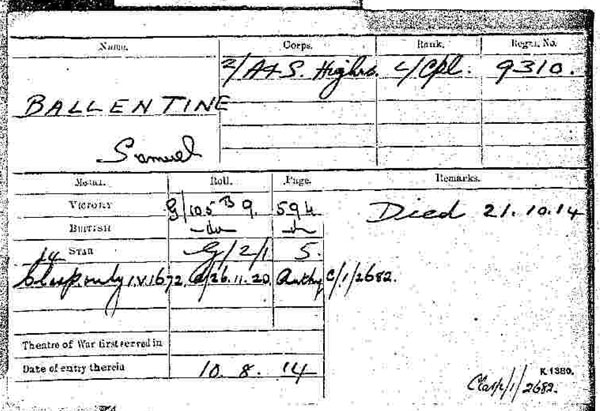 Name. Corps. Rank. Regtl. No.
BALLENTINE 2/A & S. Highrs. L/Cpl. 9310.
Samuel
Medal. Roll. Page. Remarks.
VICTORY G/105 B 9. 594 Died 21.10.14
BRITISH -do- -do-
14 STAR G/2/1 5.
Clasp only I.V. 1672. d/26.11.20. Authy C/1/2682.
Theatre of War first served in
Date of entry therein 10. 8. 14
K.1380.
Clasp/1/2682.